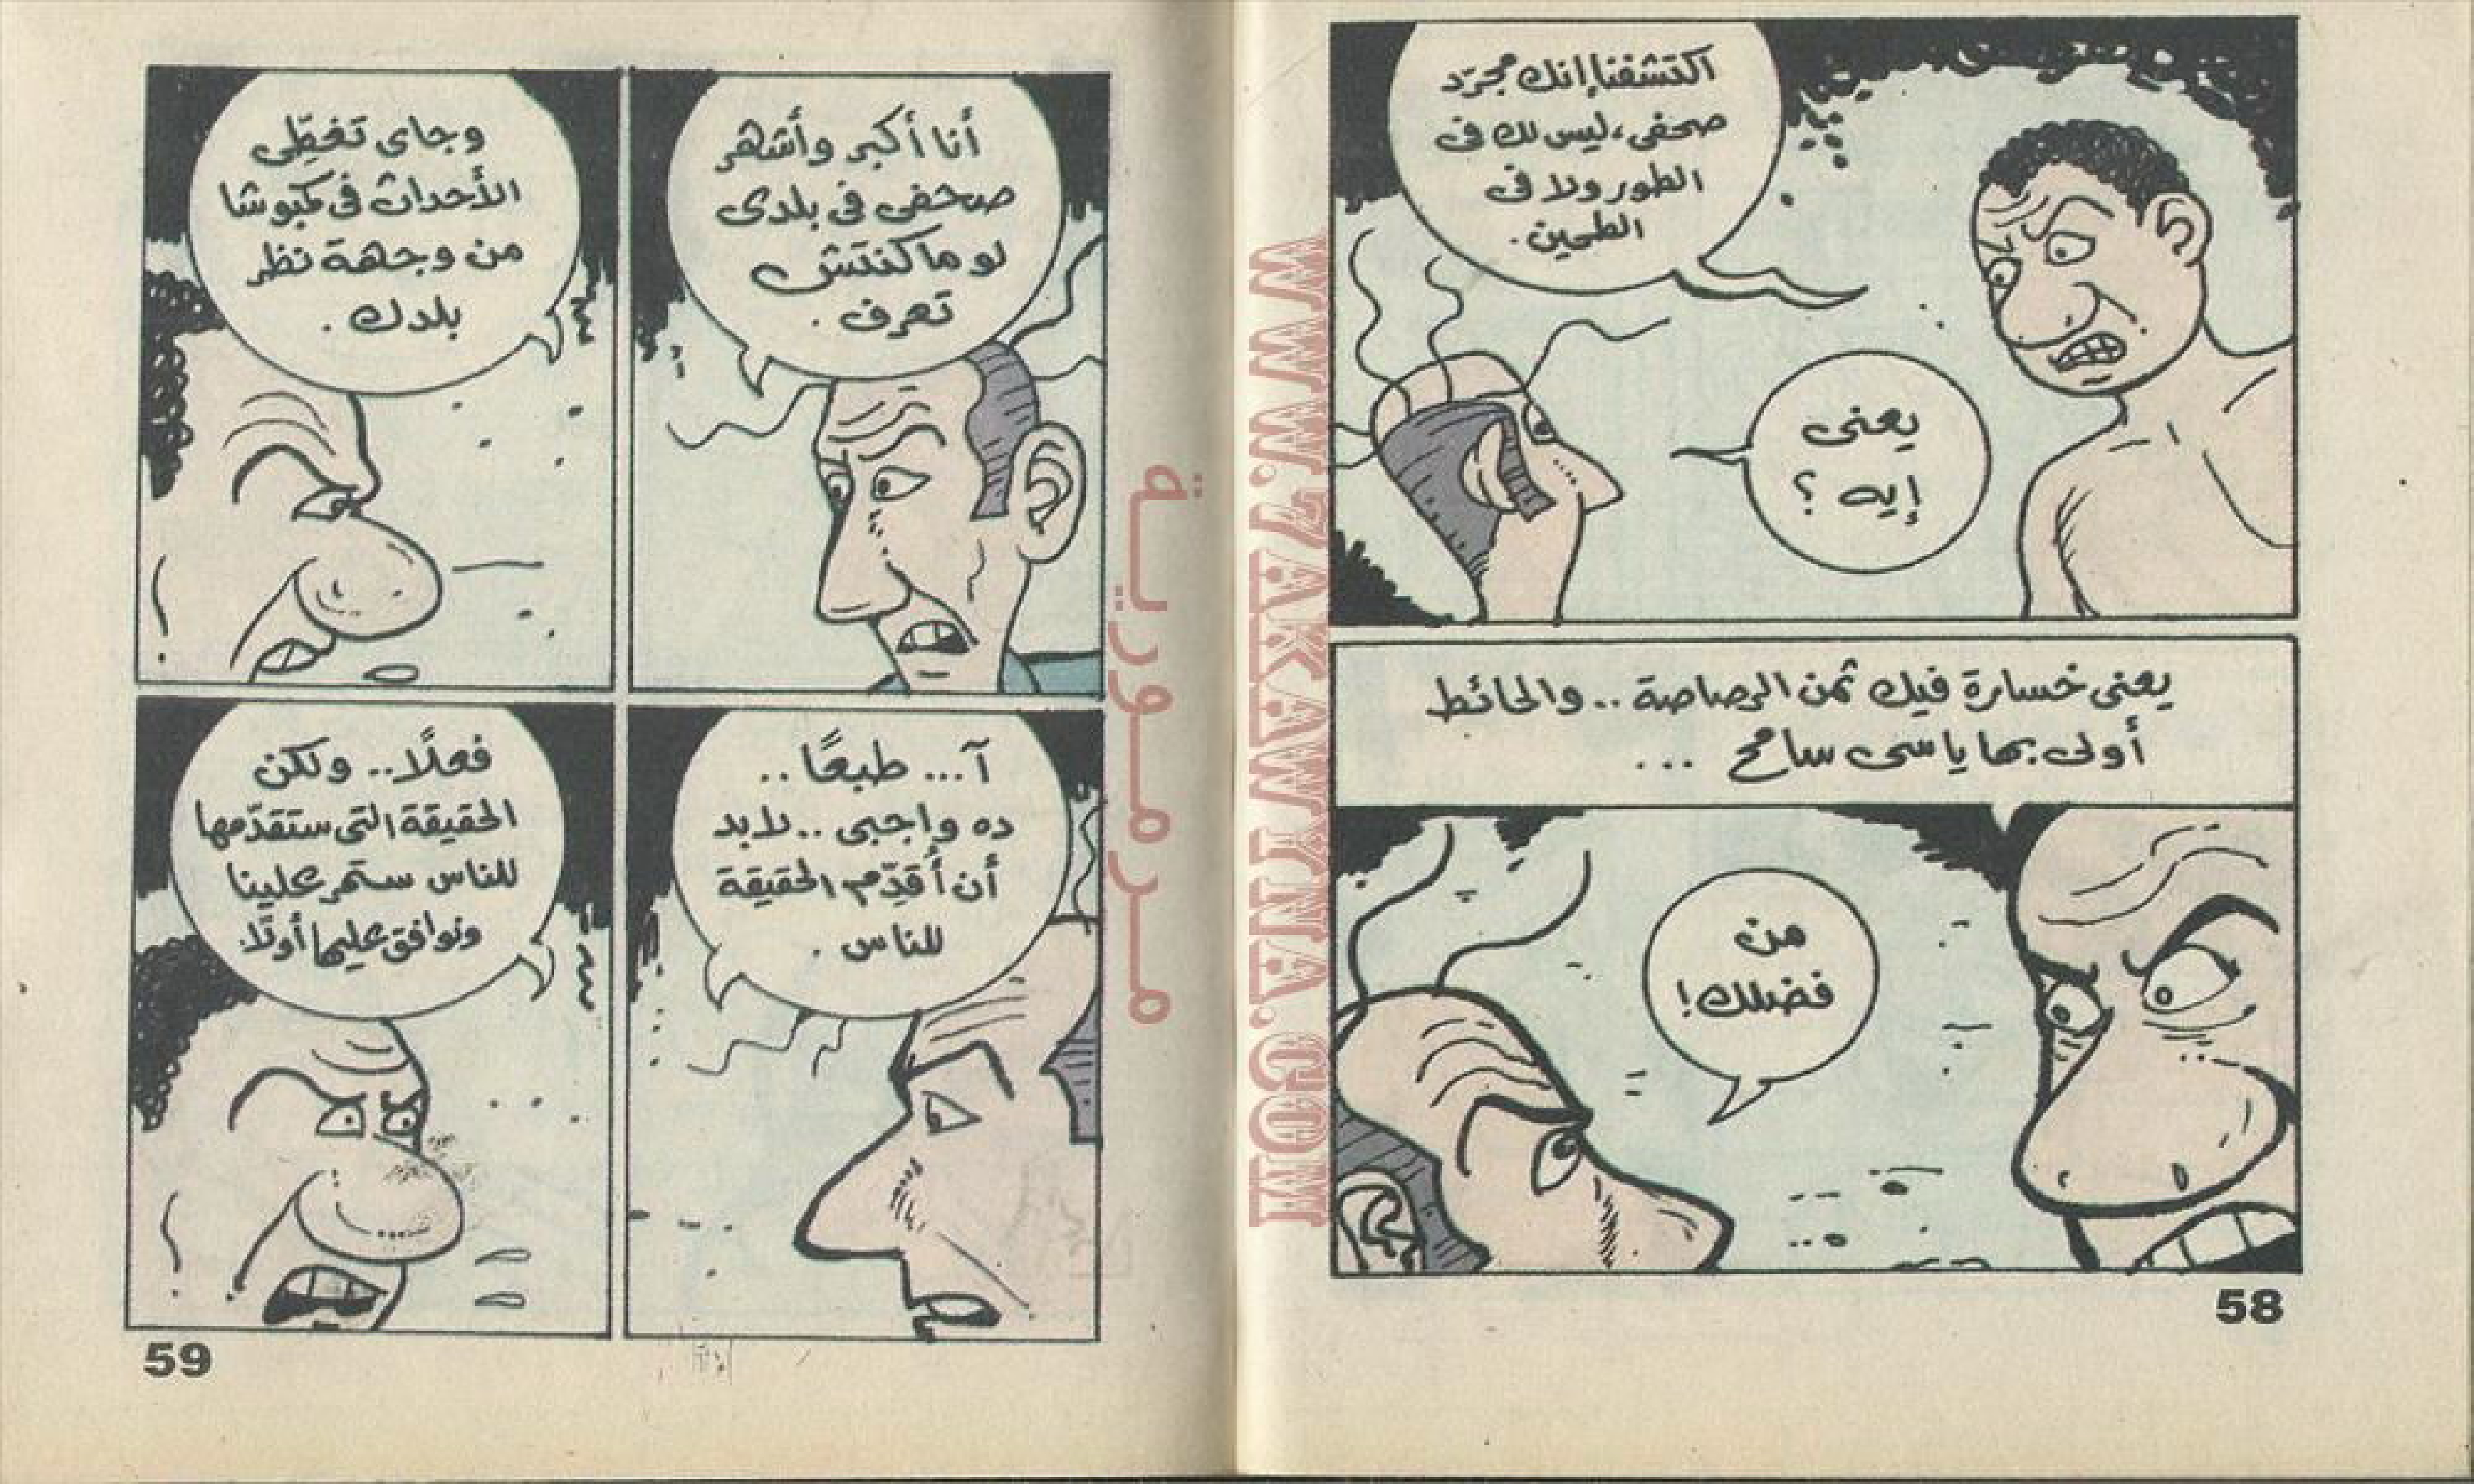 اكتشفنا إنك مجرّد
صحفى، ليس لك فى
الطور ولا فى
الطحين.
يعنى
إيه؟
يعنى خسارة فيك ثمن الرصاصة.. والحائط
أولى بها يا سى سامح ...
من
فضلك!
58
أنا أكبر وأشهر
صحفى فى بلدى
لو ما كنتش
تعرف.
وجاى تغطِّى
الأحداث فى كمبوشا
من وجهة نظر
بلدك.
آ... طبعًا..
ده واجبى.. لابد
أن أُقدِّم الحقيقة
للناس.
فعلًا.. ولكن
الحقيقة التى ستقدّمها
للناس ستمر علينا
ونوافق عليها أولًا.
59
مرمورية
WWW.7AKAWINA.COM